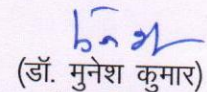 (डॉ. मुनेश कुमार)